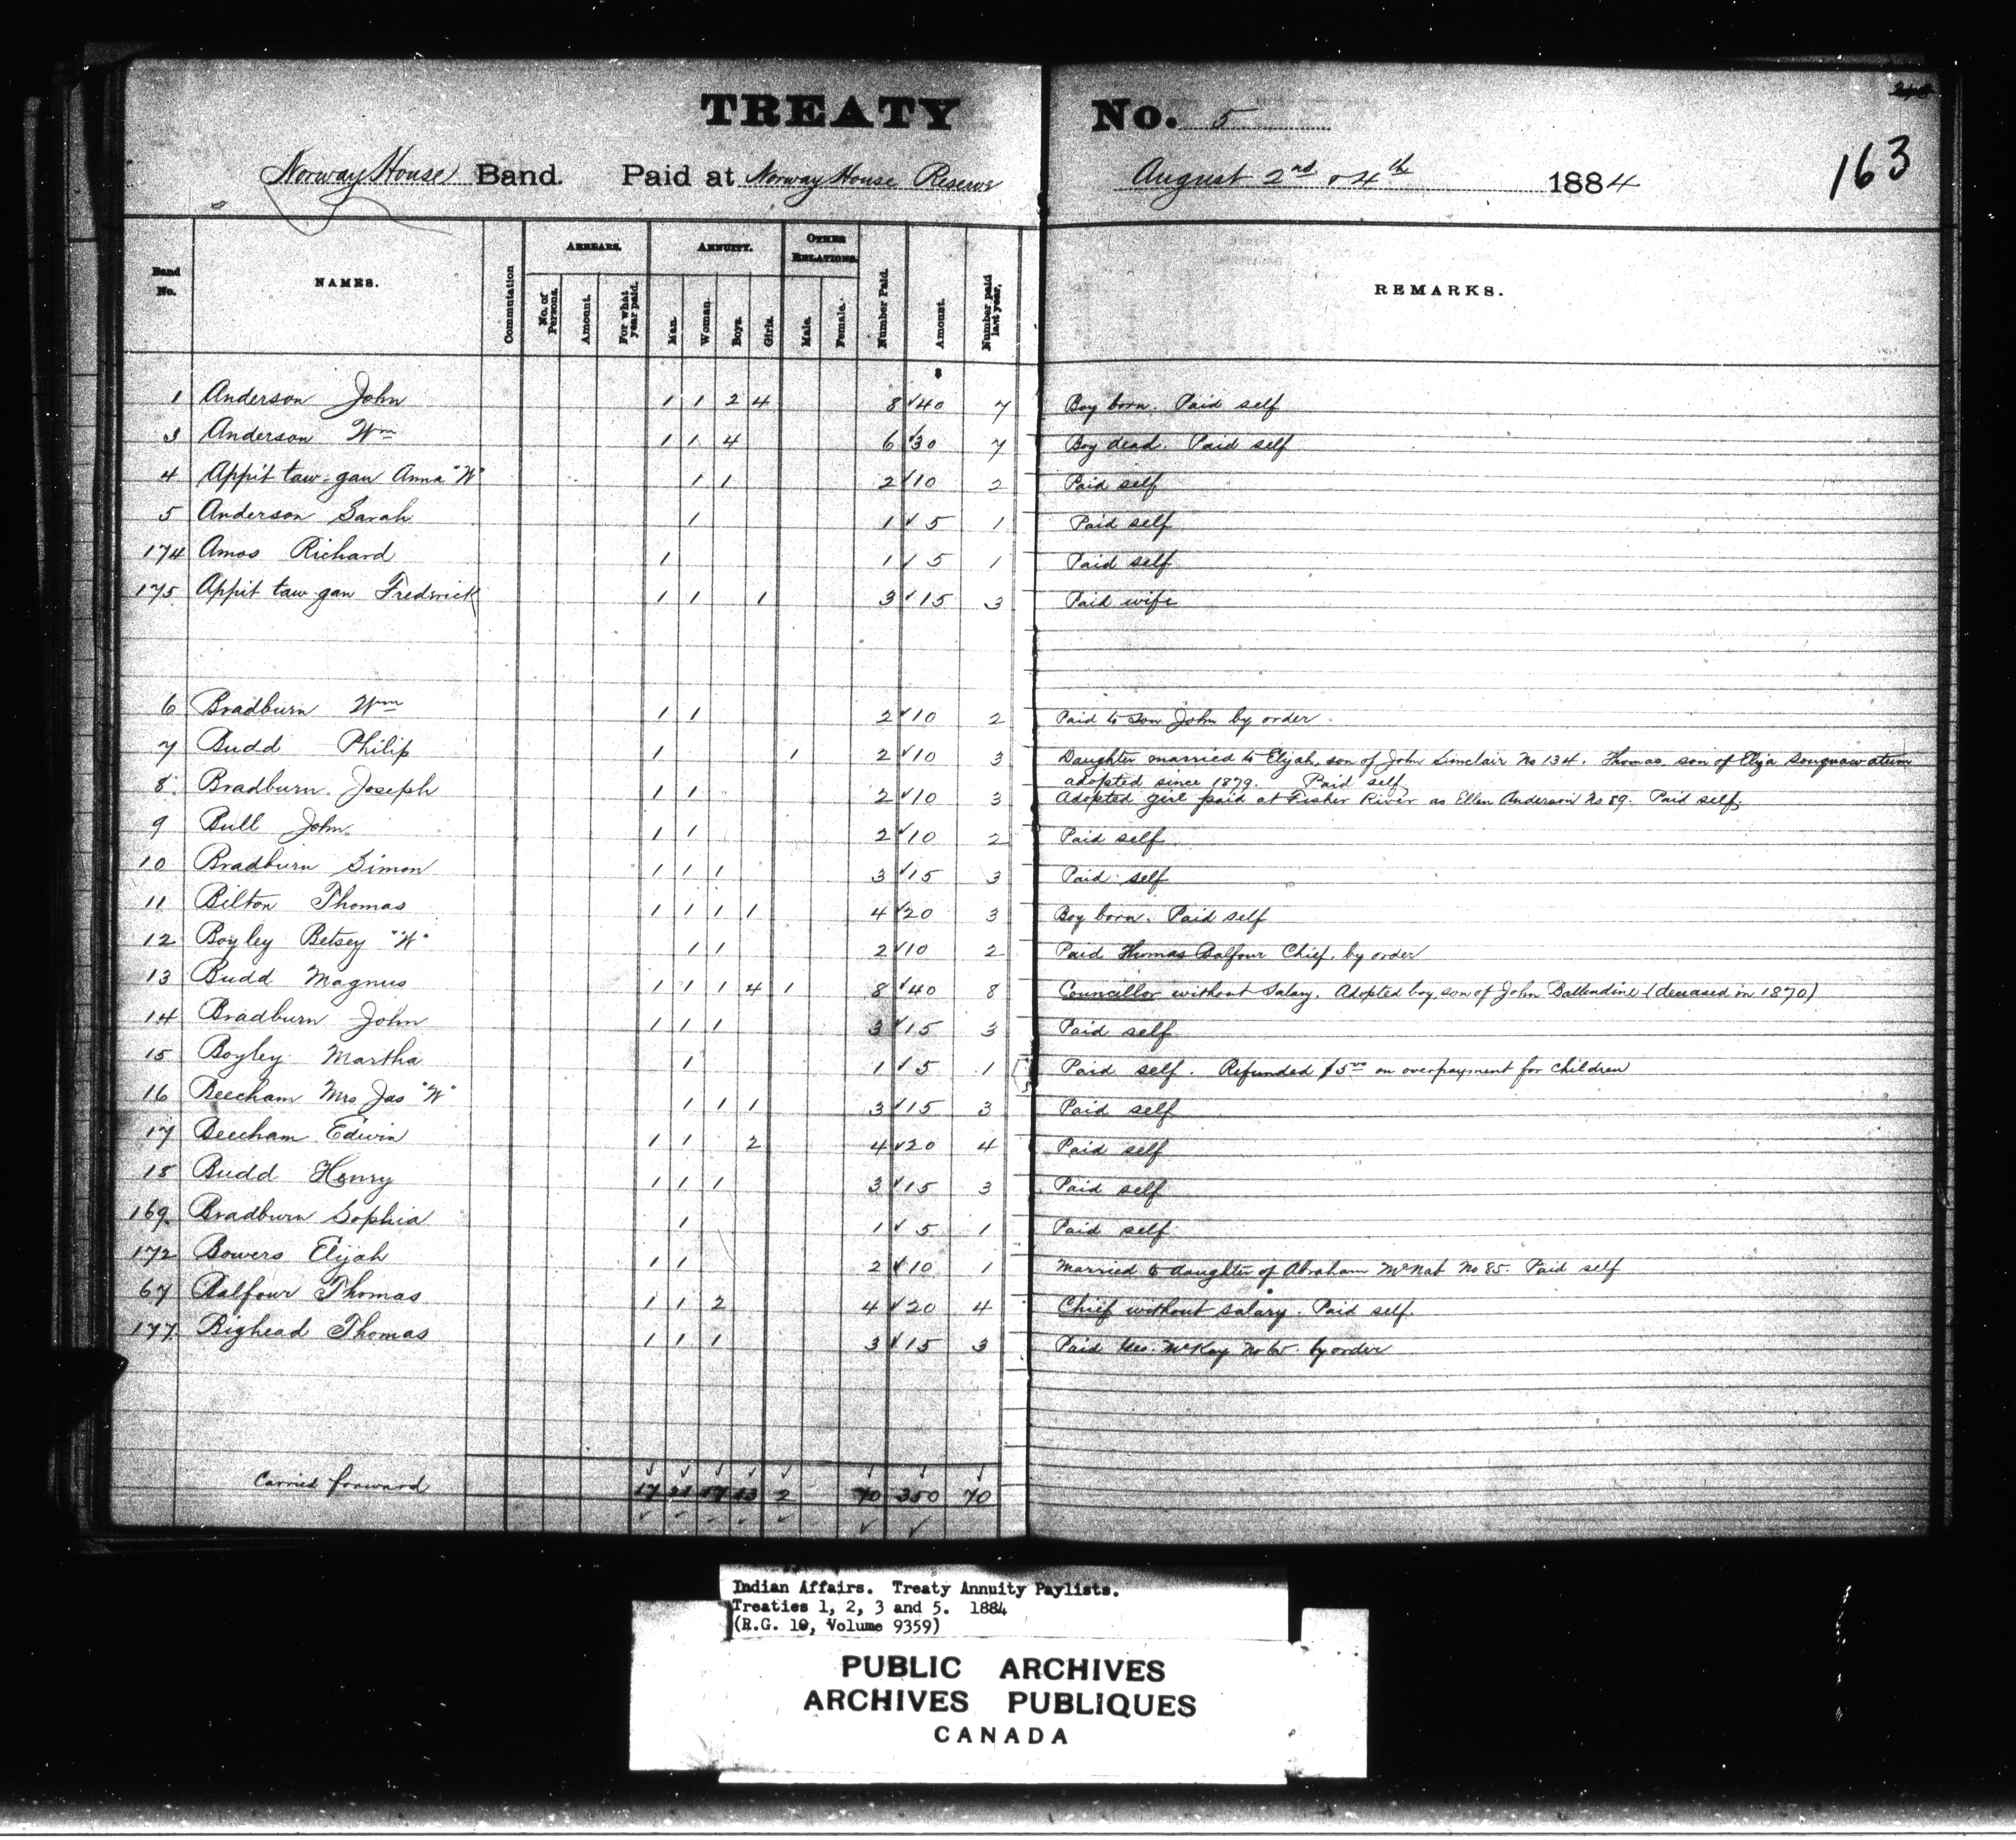 TREATY No. 5
163
Norway House Band. Paid at Norway House Reserve August 2nd & 4th 1884
Band No. NAMES. Commutation ARREARS. No. of Persons. Amount. For what year paid. ANNUITY. Man. Woman. Boys. Girls. OTHER RELATIONS. Male. Female. Number Paid. Amount. Number paid last year. REMARKS.
$
1 Anderson John 1 1 2 4 8 40 7 Boy born. Paid self
3 Anderson Wm 1 1 4 6 30 7 Boy dead. Paid self
4 Appit taw-gan Anna "W" 1 1 2 10 2 Paid self
5 Anderson Sarah 1 1 5 1 Paid self
174 Amos Richard 1 1 5 1 Paid self
175 Appit taw gan Frederick 1 1 1 3 15 3 Paid wife
6 Bradburn Wm 1 1 2 10 2 Paid to son John by order
7 Budd Philip 1 1 2 10 3 Daughter married to Elijah, son of John Sinclair No 134. Thomas, son of Elija Souquawatum
adopted since 1879. Paid self
8 Bradburn Joseph 1 1 2 10 3 Adopted girl paid at Fisher River as Ellen Anderson No 89. Paid self.
9 Bull John 1 1 2 10 2 Paid self
10 Bradburn Simon 1 1 1 3 15 3 Paid self
11 Bilton Thomas 1 1 1 1 4 20 3 Boy born. Paid self
12 Boyley Betsey "W" 1 1 2 10 2 Paid Thomas Balfour Chief, by order
13 Budd Magnus 1 1 1 4 1 8 40 8 Councillor without Salary. Adopted boy, son of John Ballendine (deceased in 1870)
14 Bradburn John 1 1 1 3 15 3 Paid self
15 Boyley Martha 1 1 5 1 Paid self. Refunded $5.00 on overpayment for children
16 Beecham Mrs Jas "W" 1 1 1 3 15 3 Paid self
17 Beecham Edwin 1 1 2 4 20 4 Paid self
18 Budd Henry 1 1 1 3 15 3 Paid self
169 Bradburn Sophia 1 1 5 1 Paid self
172 Bowers Elijah 1 1 2 10 1 Married to daughter of Abraham McNab No 85. Paid self
67 Balfour Thomas 1 1 2 4 20 4 Chief without salary. Paid self.
177 Bighead Thomas 1 1 1 3 15 3 Paid Geo. McKay No by order
Carried forward 17 21 17 13 2 70 350 70
Indian Affairs. Treaty Annuity Paylists.
Treaties 1, 2, 3 and 5. 1884
(R.G. 10, Volume 9359)
PUBLIC ARCHIVES
ARCHIVES PUBLIQUES
CANADA